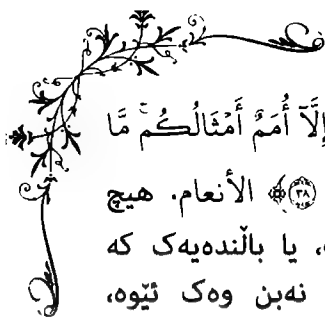 إِلَّآ أُمَمٌ أَمْثَالُكُم ۚ مَّا
﴿٣٨﴾ الأنعام. هیچ
، یا باڵندەیەک کە
نەبن وەک ئێوە،